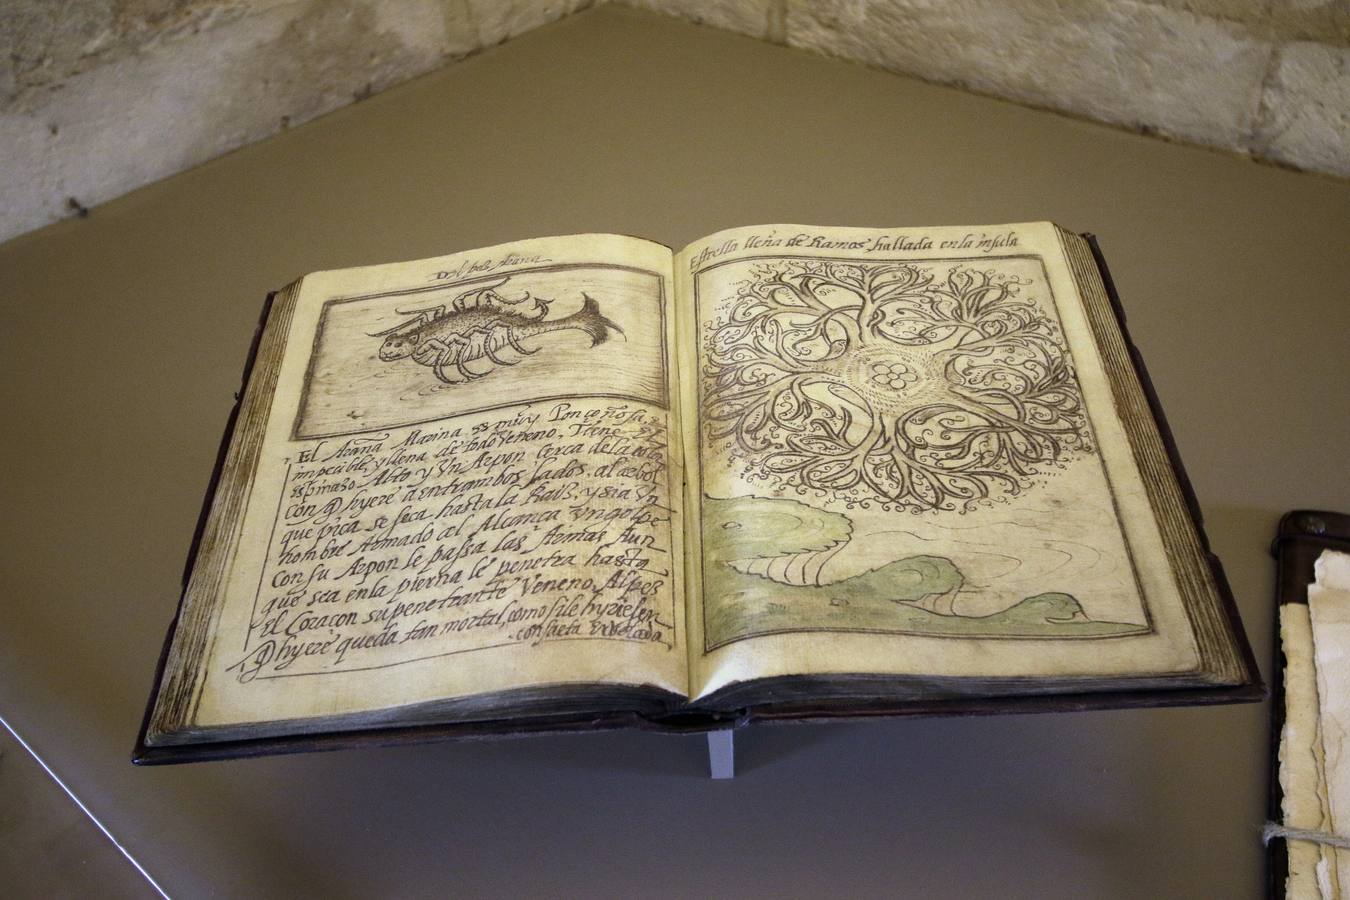 Del pez Araña
El Araña Marina es muy Ponçoñosa,
impecible, y llena de todo Veneno, Tiene
espinazo Alto y Vn Arpon cerca de la
con q̃ hyere a entrambos lados, al arbol
que pica, se seca hasta la Raiz, y si a Vn
hombre Armado al Alcança Vn golpe
con su Arpon le passa las Armas Aun
que sea en la pierna le penetra hasta
el Coraçon su penetrante Veneno, Al pez
q̃ hyere queda tan mortal, como si le hyriesen
con saeta
Estrella lleña de Ramos hallada en la insula